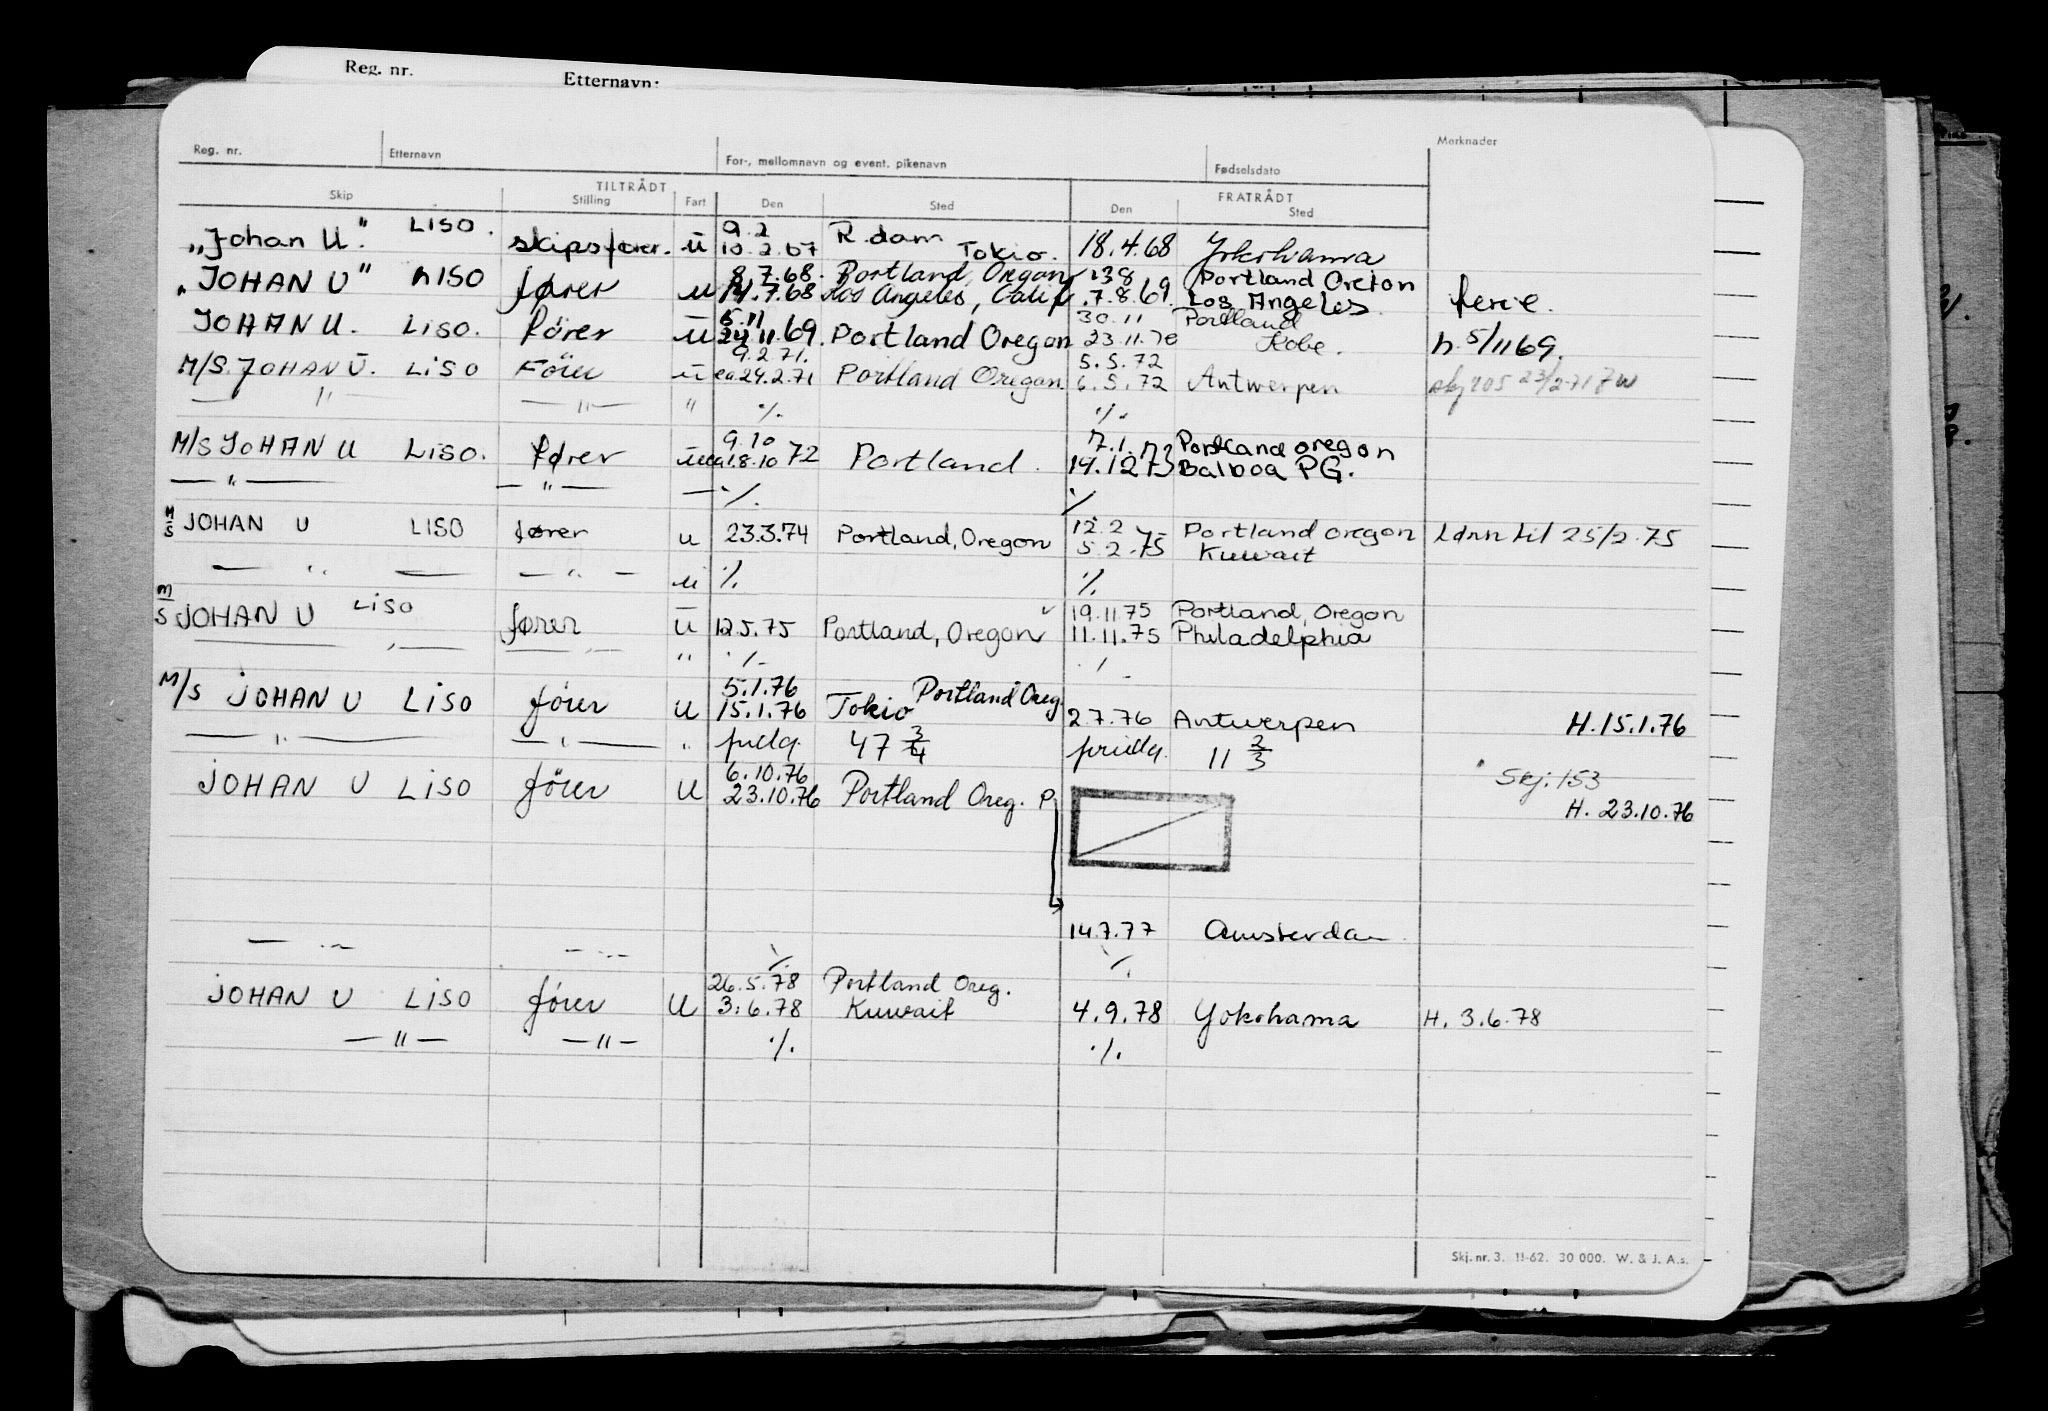 Reg. nr. Etternavn:
Reg. nr. Etternavn For-, mellomnavn og event. pikenavn Fødselsdato Merknader
TILTRÅDT FRATRÅDT
Skip Stilling Fart Den Sted Den Sted
9.2 R.dam
„Johan U." LISO. skipsfører. u 10.2.67 Tokio. 18.4.68 Yokohama
8.7.68. Portland, Oregon 138 Portland Oreton
„JOHAN U" LISO fører u 14.7.68 Los Angeles, Calif .7.8.69. Los Angeles. ferie.
5.11 30.11 Portland
JOHAN U. LISO. fører u 24.11.69. Portland Oregon 23.11.70 Kobe. h. 5/11 69.
9.2.71. 5.5.72
M/S. JOHAN U. LISO Förer u ca 24.2.71 Portland Oregon. 6.5.72 Antwerpen skj 205 23/2-71
— " — — " — " ./. ./.
9.10 7.1. Portland oregon
M/S JOHAN U LISO. fører u ca 18.10 72 Portland. 14.12 73 Balboa PG.
— " — — " — — ./. ./.
12.2 Portland oregon
M/S JOHAN U LISO fører u 23.3.74 Portland, Oregon 5.2.75 Kuwait Lønn til 25/2-75
— " — — " — u ./. ./.
19.11.75 Portland, Oregon
M/S JOHAN U LISO fører u 12.5.75 Portland, Oregon 11.11.75 Philadelphia
— " — — " — " ./. ./.
5.1.76 Portland Oreg.
M/S JOHAN U LISO förer u 15.1.76 Tokio 2.7.76 Antwerpen H. 15.1.76
— " — — " — " 47 3/4 11 2/3
6.10.76 Skj. 153
JOHAN U LISO förer u 23.10.76 Portland Oreg. P H. 23.10.76
14.7.77 Amsterdam
— " — — " — ./. ./.
26.5.78 Portland Oreg.
JOHAN U LISO förer U 3.6.78 Kuwait 4.9.78 Yokohama H. 3.6.78
— " — — " — ./. ./.
Skj. nr. 3. 11-62. 30 000. W. & J. A.s.